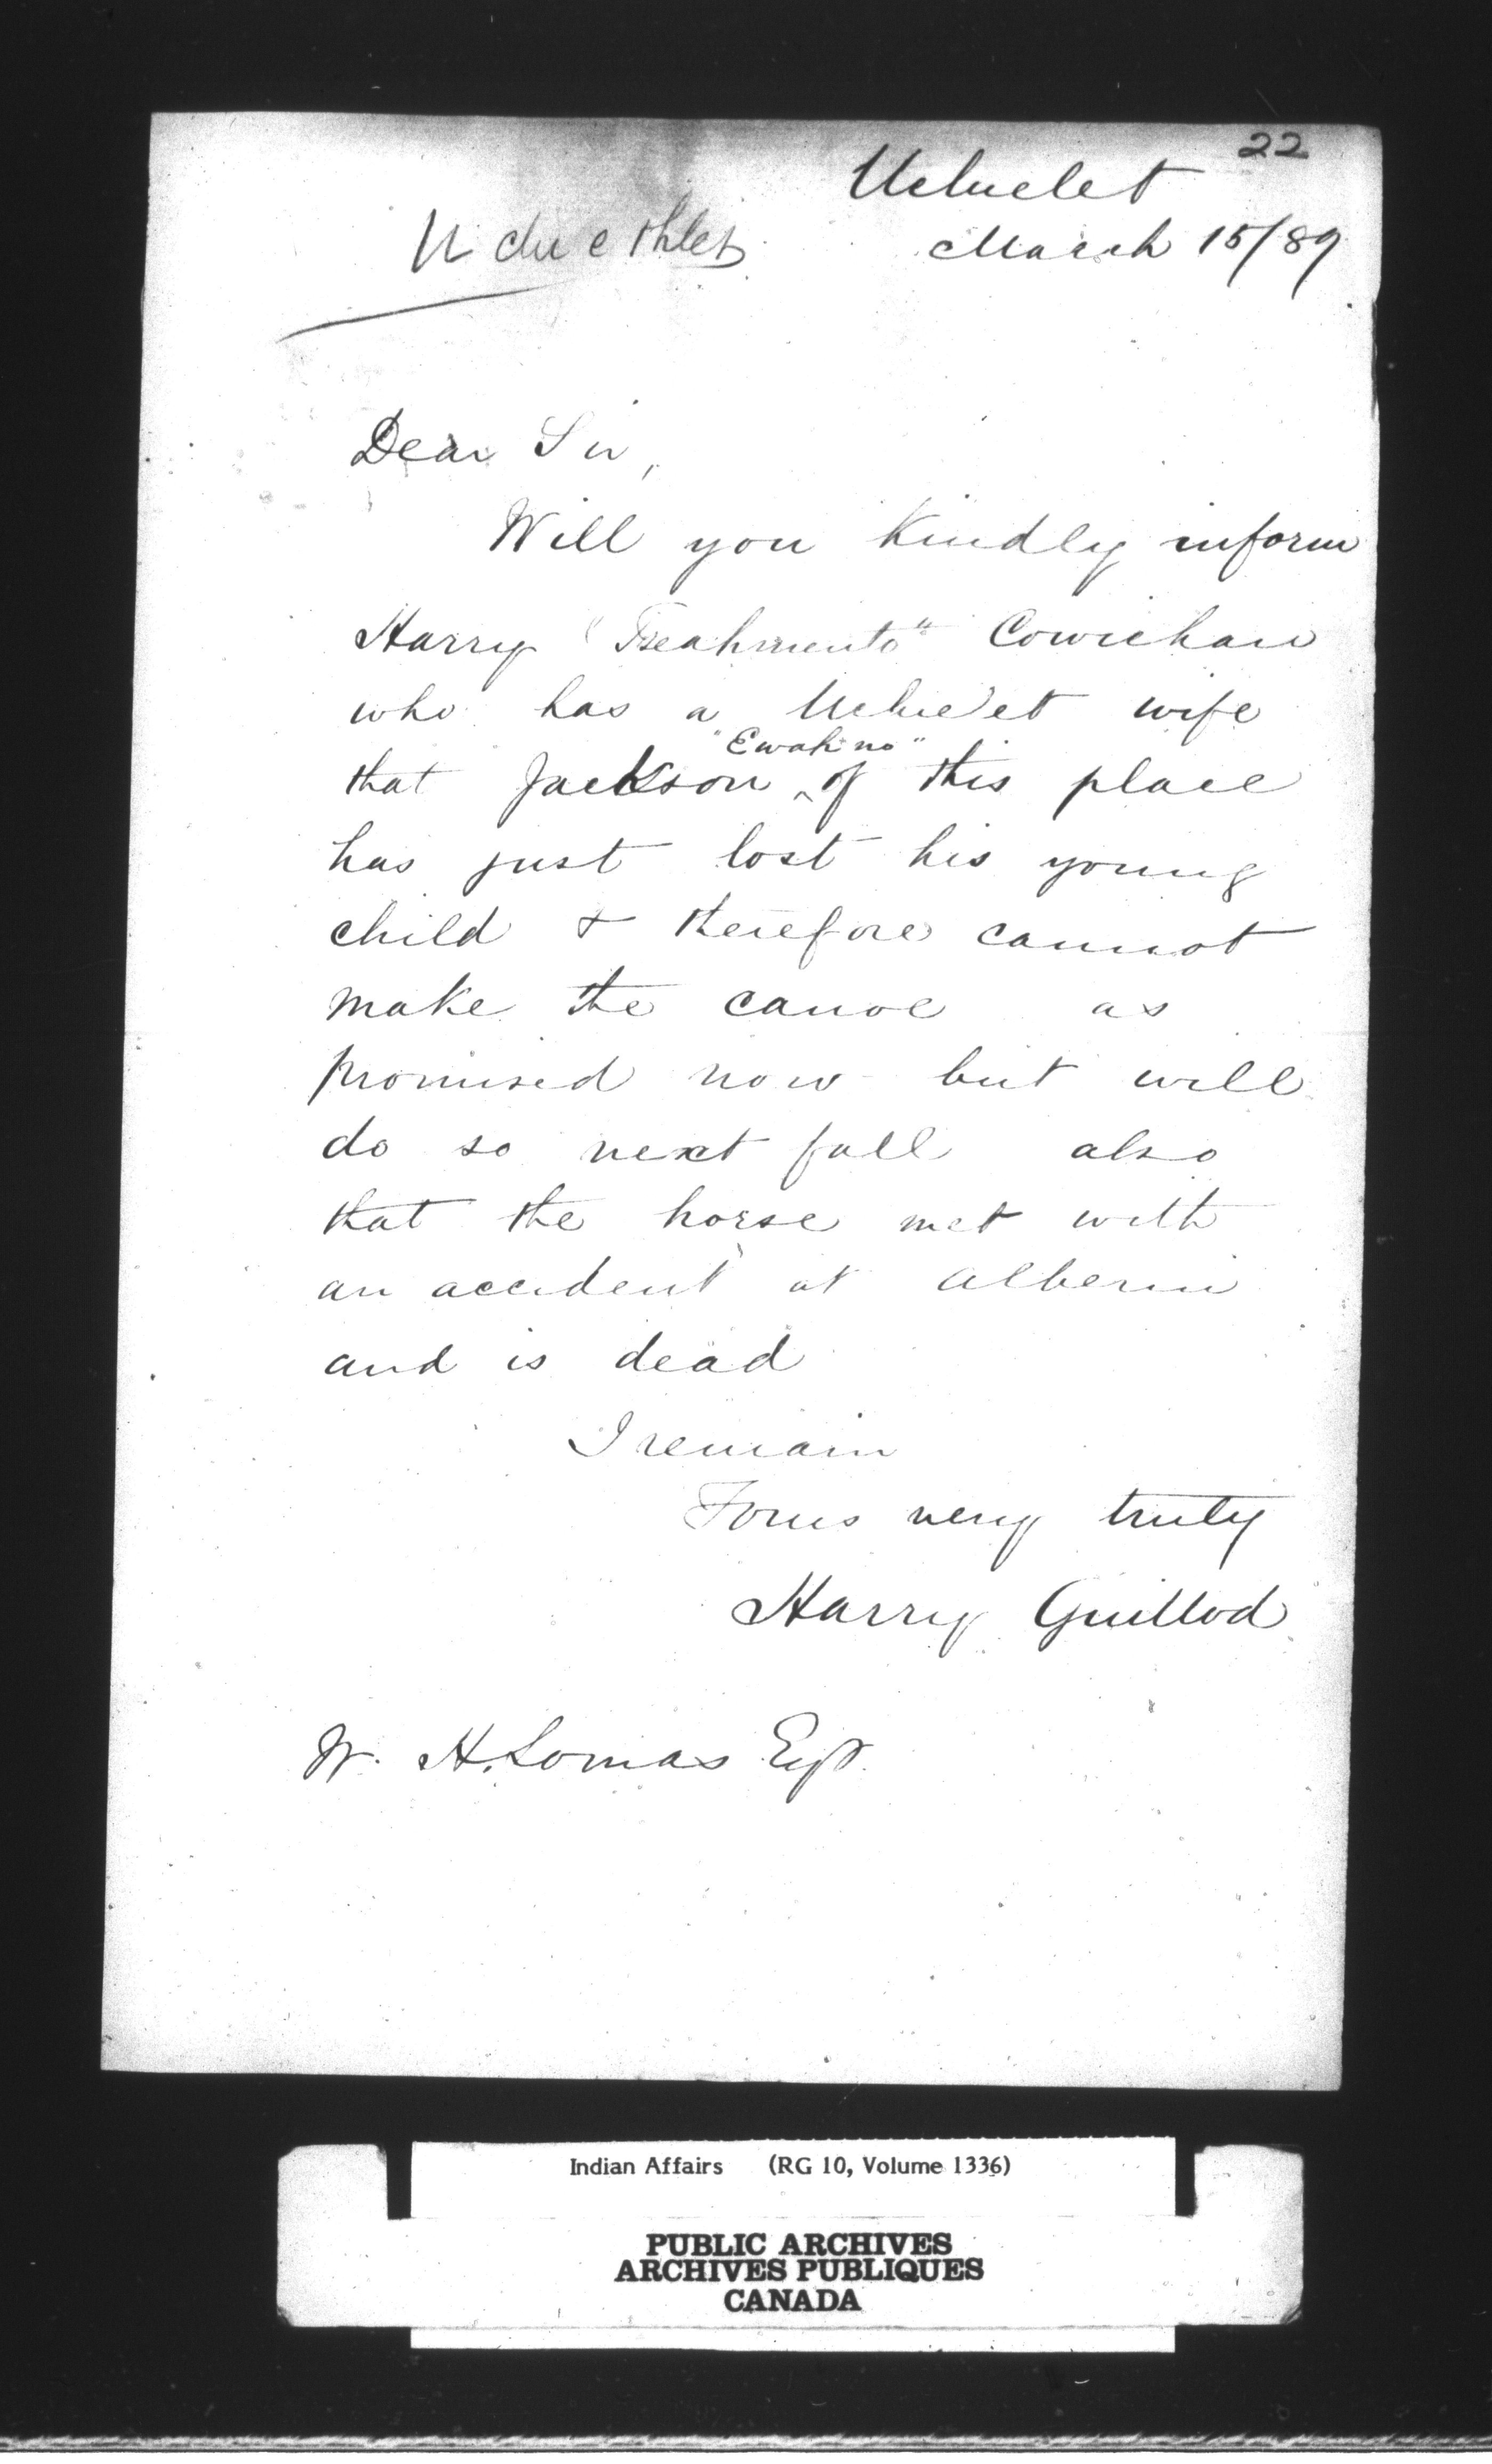 22
Ucluelet
March 15/89
Dear Sir,
Will you kindly inform
Harry "Tseahmento" Cowichan
who has a Ucluelet wife
"Ewahno"
that Jackson ^ of this place
has just lost his young
child & therefore cannot
make the canoe as
promised now but will
do so next fall also
that the horse met with
an accident at Alberni
and is dead
I remain
Yours very truly
Harry Guillod
W. H. Lomas Esq.
Indian Affairs (RG 10, Volume 1336)
PUBLIC ARCHIVES
ARCHIVES PUBLIQUES
CANADA